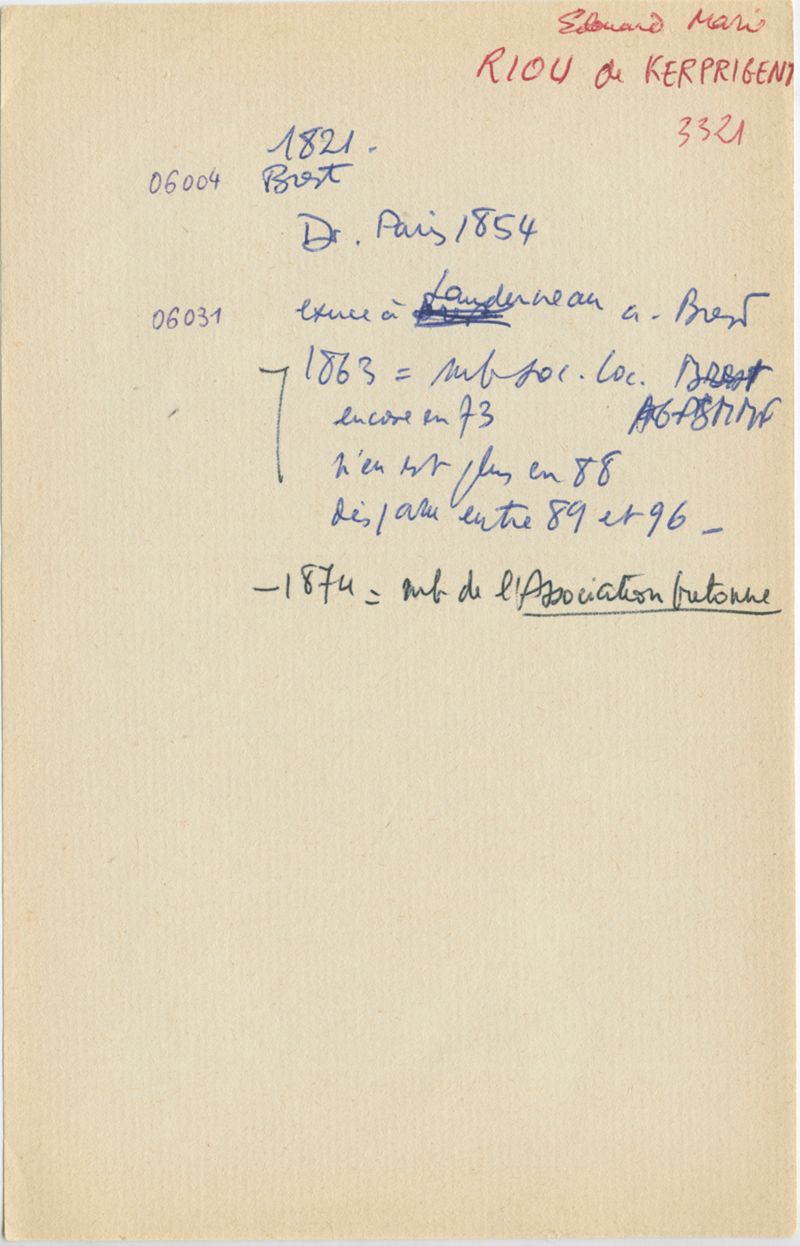 Edouard Marie
RIOU de KERPRIGENT
3321
1821.
06004 Brest
Dr. Paris 1854
06031 exerce à Landerneau a. Brest
1863 = mb soc. loc. BREST
encore en 73
n'en est plus en 88
disparu entre 89 et 96 –
– 1874 = mb de l'Association bretonne